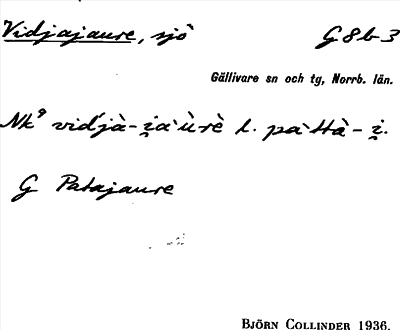 Vidjajaure, sjö G8b-3
Gällivare sn och tg, Norrb. län.
Nk⁹ vid́jà-i̯a·ùrè l. pa·ttà-i̯.
G Patajaure
BJÖRN COLLINDER 1936.